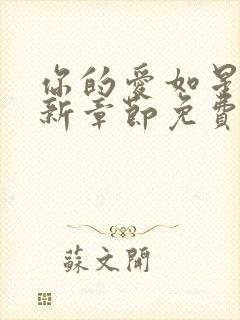 你的愛如星
新章節免費
蘇文開